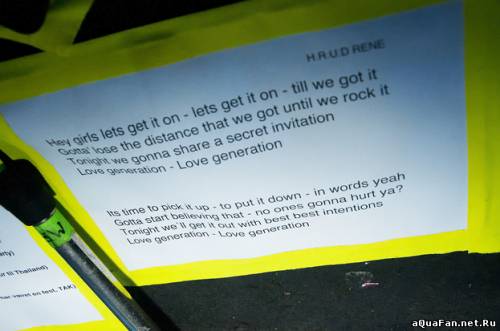 H.R.U.D RENE
Hey girls lets get it on - lets get it on - till we got it
Gotta' lose the distance that we got until we rock it
Tonight we gonna share a secret invitation
Love generation - Love generation
Its time to pick it up - to put it down - in words yeah
Gotta start believing that - no ones gonna hurt ya?
Tonight we'll get it out with best best intentions
Love generation - Love generation
til Thailand)
været en test, TAK)
aQuaFan.net.Ru